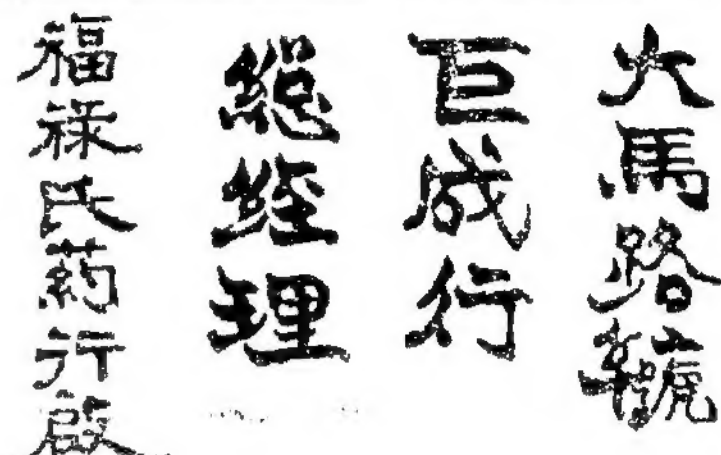 大馬路號
巨成行
總經理
福祿氏药行啟